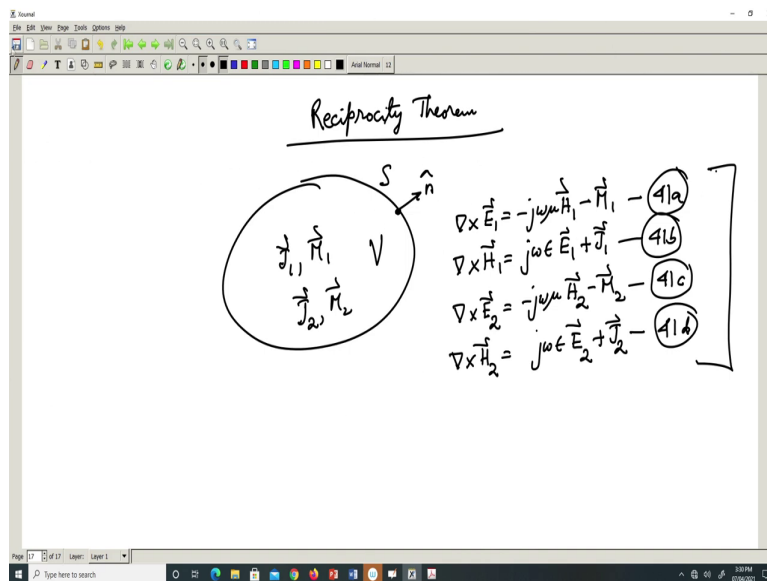 Xournal
File Edit View Page Tools Options Help
Arial Normal 12
Reciprocity Theorem
S
n̂
J⃗₁, M⃗₁ V
J⃗₂, M⃗₂
∇×E⃗₁ = -jωμH⃗₁ - M⃗₁ — 41a
∇×H⃗₁ = jωϵE⃗₁ + J⃗₁ — 41b
∇×E⃗₂ = -jωμH⃗₂ - M⃗₂ — 41c
∇×H⃗₂ = jωϵE⃗₂ + J⃗₂ — 41d
Page 17 of 17 Layer: Layer 1
Type here to search
3:30 PM
07/04/2021